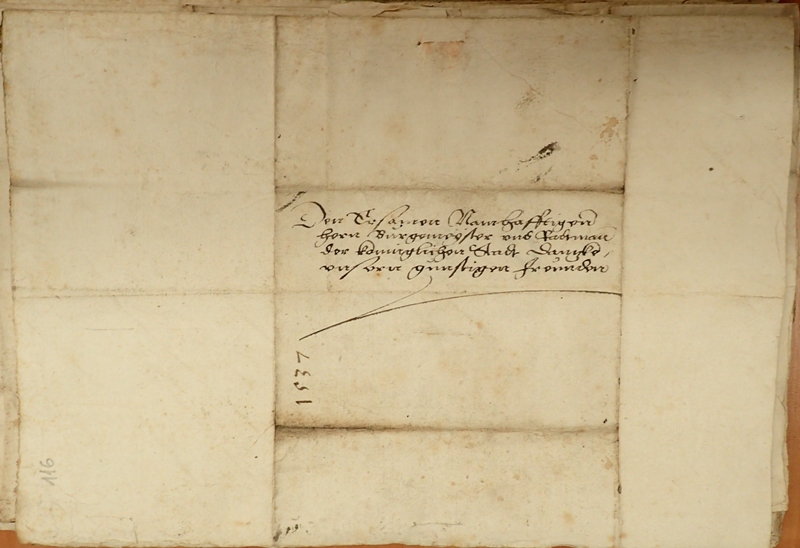 Den Ersamen Namhafftigen
hern Burgemeyster und Ratman
der koniglichen Stadt Dantzke,
unsern gunstigen freunden
1537
116